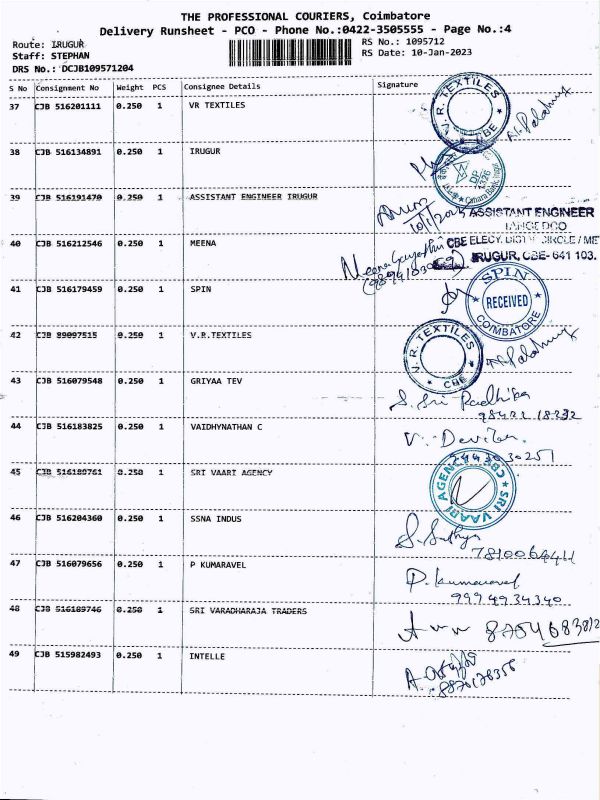 THE PROFESSIONAL COURIERS, Coimbatore
Delivery Runsheet - PCO - Phone No.:0422-3505555 - Page No.:4
Route: IRUGUR
RS No.: 1095712
Staff: STEPHAN
RS Date: 10-Jan-2023
DRS No.: DCJB109571204
S No Consignment No Weight PCS Consignee Details Signature
37 CJB 516201111 0.250 1 VR TEXTILES
V. R. TEXTILES CBE
38 CJB 516134891 0.250 1 IRUGUR
39 CJB 516191470 0.250 1 ASSISTANT ENGINEER IRUGUR
ASSISTANT ENGINEER
40 CJB 516212546 0.250 1 MEENA
IRUGUR, CBE- 641 103.
41 CJB 516179459 0.250 1 SPIN
SPIN RECEIVED COIMBATORE
42 CJB 89097515 0.250 1 V.R.TEXTILES
V. R. TEXTILES CBE
43 CJB 516079548 0.250 1 GRIYAA TEV
S. Sri Radhika
44 CJB 516183825 0.250 1 VAIDHYNATHAN C
45 CJB 516189761 0.250 1 SRI VAARI AGENCY
SRI VAARI AGENCY CBE
46 CJB 516204360 0.250 1 SSNA INDUS
S. Sathya
47 CJB 516079656 0.250 1 P KUMARAVEL
P. Kumaravel
9994934340
48 CJB 516189746 0.250 1 SRI VARADHARAJA TRADERS
49 CJB 515982493 0.250 1 INTELLE